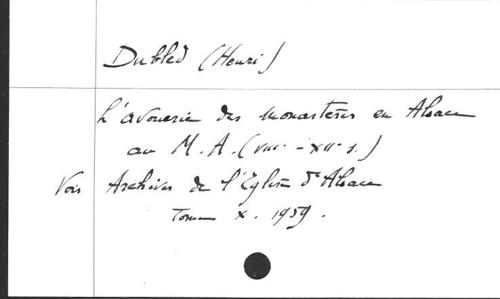 Dubled (Henri)
L'avouerie des monastères en Alsace
au M. A. (VIIIe - XIIe s.)
Voir Archives de l'Eglise d'Alsace
Tome X. 1959.